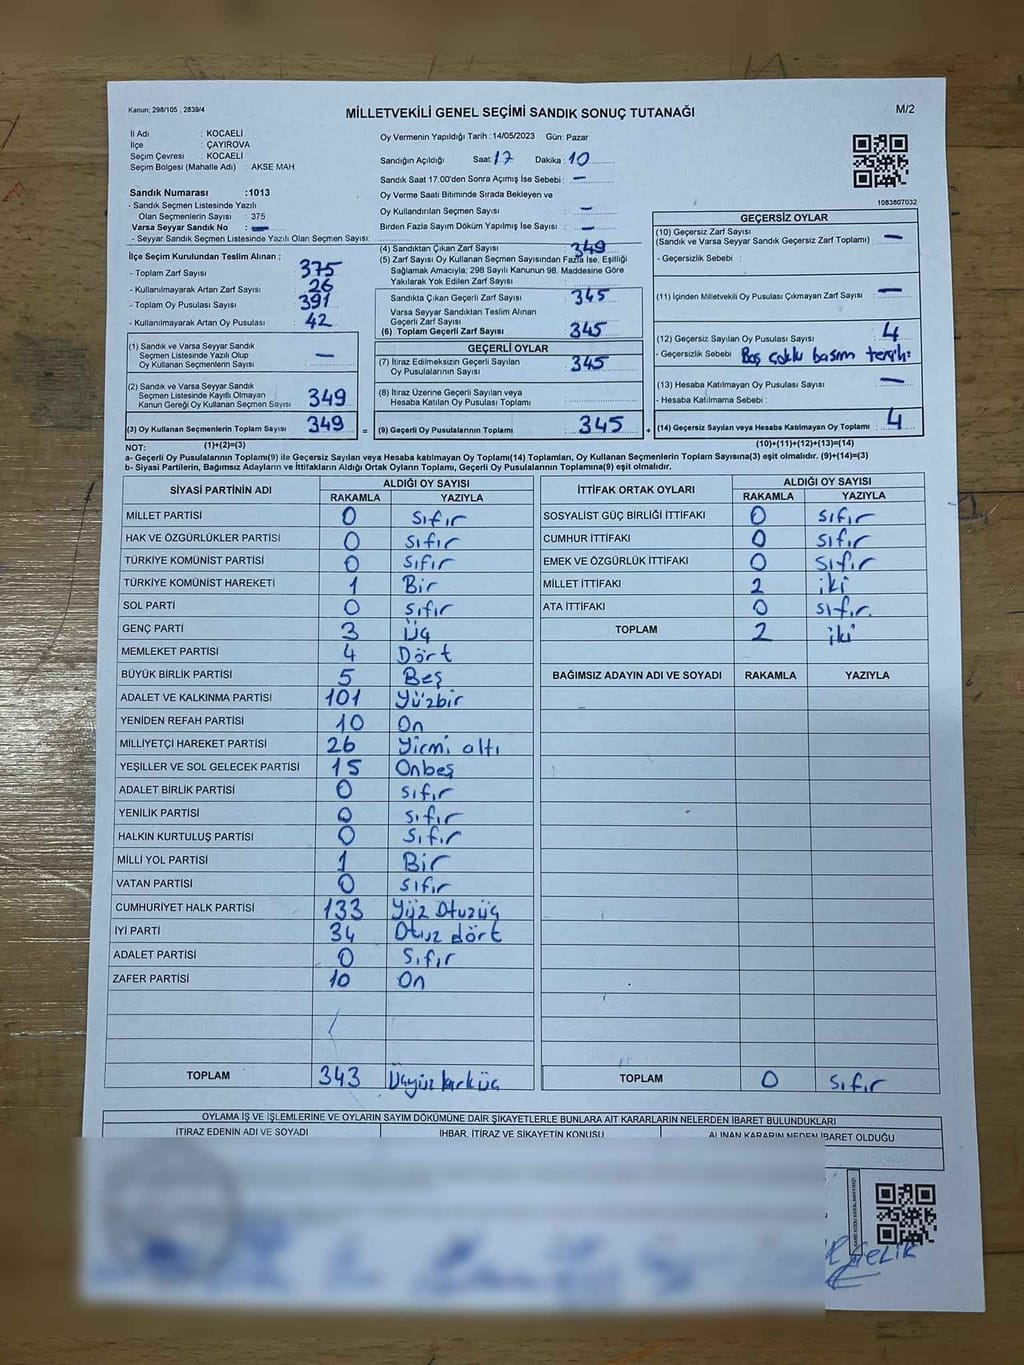 Kanun; 298/105 , 2839/4
MİLLETVEKİLİ GENEL SEÇİMİ SANDIK SONUÇ TUTANAĞI
M/2
İl Adı : KOCAELİ
İlçe : ÇAYIROVA
Seçim Çevresi : KOCAELİ
Seçim Bölgesi (Mahalle Adı) : AKSE MAH
Sandık Numarası :1013
- Sandık Seçmen Listesinde Yazılı
Olan Seçmenlerin Sayısı : 375
Varsa Seyyar Sandık No : —
- Seyyar Sandık Seçmen Listesinde Yazılı Olan Seçmen Sayısı:
İlçe Seçim Kurulundan Teslim Alınan ;
- Toplam Zarf Sayısı : 375
- Kullanılmayarak Artan Zarf Sayısı : 26
- Toplam Oy Pusulası Sayısı : 391
- Kullanılmayarak Artan Oy Pusulası : 42
(1) Sandık ve Varsa Seyyar Sandık
Seçmen Listesinde Yazılı Olup
Oy Kullanan Seçmenlerin Sayısı : —
(2) Sandık ve Varsa Seyyar Sandık
Seçmen Listesinde Kayıtlı Olmayan
Kanun Gereği Oy Kullanan Seçmen Sayısı 349
(3) Oy Kullanan Seçmenlerin Toplam Sayısı : 349
(1)+(2)=(3)
Oy Vermenin Yapıldığı Tarih :14/05/2023 Gün: Pazar
Sandığın Açıldığı Saat: 17 Dakika : 10
Sandık Saat 17:00'den Sonra Açımış İse Sebebi : —
Oy Verme Saati Bitiminde Sırada Bekleyen ve
Oy Kullandırılan Seçmen Sayısı : —
Birden Fazla Sayım Döküm Yapılmış İse Sayısı : —
(4) Sandıktan Çıkan Zarf Sayısı : 349
(5) Zarf Sayısı Oy Kullanan Seçmen Sayısından Fazla İse, Eşitliği
Sağlamak Amacıyla; 298 Sayılı Kanunun 98. Maddesine Göre
Yakılarak Yok Edilen Zarf Sayısı :
Sandıkta Çıkan Geçerli Zarf Sayısı : 345
Varsa Seyyar Sandıktan Teslim Alınan
Geçerli Zarf Sayısı :
(6) Toplam Geçerli Zarf Sayısı : 345
GEÇERLİ OYLAR
(7) İtiraz Edilmeksizin Geçerli Sayılan
Oy Pusulalarının Sayısı : 345
(8) İtiraz Üzerine Geçerli Sayılan veya
Hesaba Katılan Oy Pusulası Toplamı :
= (9) Geçerli Oy Pusulalarının Toplamı : 345 +
1083807032
GEÇERSİZ OYLAR
(10) Geçersiz Zarf Sayısı
(Sandık ve Varsa Seyyar Sandık Geçersiz Zarf Toplamı) : —
- Geçersizlik Sebebi :
(11) İçinden Milletvekili Oy Pusulası Çıkmayan Zarf Sayısı : —
(12) Geçersiz Sayılan Oy Pusulası Sayısı : 4
- Geçersizlik Sebebi Boş çoklu basım tercihi
(13) Hesaba Katılmayan Oy Pusulası Sayısı : —
- Hesaba Katılmama Sebebi :
(14) Geçersiz Sayılan veya Hesaba Katılmayan Oy Toplamı : 4
(10)+(11)+(12)+(13)=(14)
NOT:
a- Geçerli Oy Pusulalarının Toplamı(9) ile Geçersiz Sayılan veya Hesaba katılmayan Oy Toplamı(14) Toplamları, Oy Kullanan Seçmenlerin Toplam Sayısına(3) eşit olmalıdır. (9)+(14)=(3)
b- Siyasi Partilerin, Bağımsız Adayların ve İttifakların Aldığı Ortak Oyların Toplamı, Geçerli Oy Pusulalarının Toplamına(9) eşit olmalıdır.
SİYASİ PARTİNİN ADI ALDIĞI OY SAYISI
RAKAMLA YAZIYLA
MİLLET PARTİSİ 0 sıfır
HAK VE ÖZGÜRLÜKLER PARTİSİ 0 sıfır
TÜRKİYE KOMÜNİST PARTİSİ 0 sıfır
TÜRKİYE KOMÜNİST HAREKETİ 1 Bir
SOL PARTİ 0 sıfır
GENÇ PARTİ 3 üç
MEMLEKET PARTİSİ 4 Dört
BÜYÜK BİRLİK PARTİSİ 5 Beş
ADALET VE KALKINMA PARTİSİ 101 Yüzbir
YENİDEN REFAH PARTİSİ 10 On
MİLLİYETÇİ HAREKET PARTİSİ 26 Yirmi altı
YEŞİLLER VE SOL GELECEK PARTİSİ 15 Onbeş
ADALET BİRLİK PARTİSİ 0 sıfır
YENİLİK PARTİSİ 0 sıfır
HALKIN KURTULUŞ PARTİSİ 0 sıfır
MİLLİ YOL PARTİSİ 1 Bir
VATAN PARTİSİ 0 sıfır
CUMHURİYET HALK PARTİSİ 133 Yüz Otuzüç
İYİ PARTİ 34 Otuz dört
ADALET PARTİSİ 0 sıfır
ZAFER PARTİSİ 10 On
TOPLAM 343 Üçyüz kırküç
İTTİFAK ORTAK OYLARI ALDIĞI OY SAYISI
RAKAMLA YAZIYLA
SOSYALİST GÜÇ BİRLİĞİ İTTİFAKI 0 sıfır
CUMHUR İTTİFAKI 0 sıfır
EMEK VE ÖZGÜRLÜK İTTİFAKI 0 sıfır
MİLLET İTTİFAKI 2 iki
ATA İTTİFAKI 0 sıfır.
TOPLAM 2 iki
BAĞIMSIZ ADAYIN ADI VE SOYADI RAKAMLA YAZIYLA
TOPLAM 0 sıfır
OYLAMA İŞ VE İŞLEMLERİNE VE OYLARIN SAYIM DÖKÜMÜNE DAİR ŞİKAYETLERLE BUNLARA AİT KARARLARIN NELERDEN İBARET BULUNDUKLARI
İTİRAZ EDENİN ADI VE SOYADI İHBAR, İTİRAZ VE ŞİKAYETİN KONUSU ALINAN KARARIN NEDEN İBARET OLDUĞU
ÇELİK